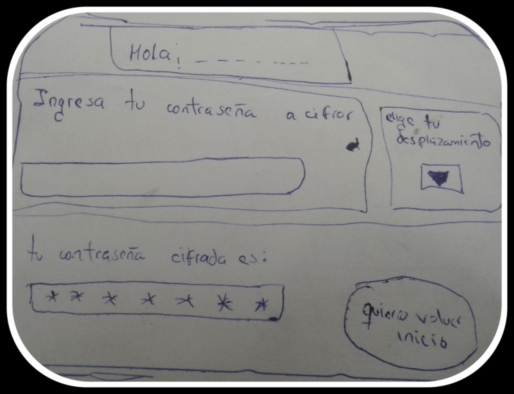 Hola¡ _ _ _ _ _ _ _
Ingresa tu contraseña a cifrar
elige tu
desplazamiento
tu contraseña cifrada es:
* * * * * * *
quiero volver
inicio